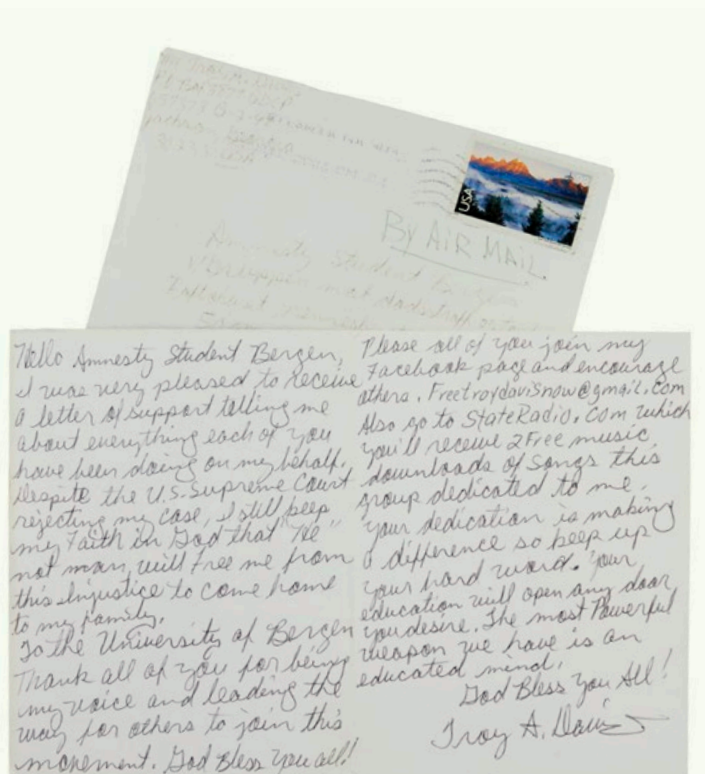 USA
By AIR MAIL
Amnesty Student Bergen
USA
Hello Amnesty Student Bergen,
I was very pleased to receive
a letter of support telling me
about everything each of you
have been doing on my behalf.
Despite the U.S. Supreme Court
rejecting my case, I still keep
my Faith in God that "He"
not man, will Free me from
this Injustice to come home
to my family.
To the University of Bergen
Thank all of you for being
my voice and leading the
way for others to join this
movement. God Bless you all!
Please all of you join my
Facebook page and encourage
others. Freetroydavisnow@gmail.com
Also go to StateRadio.com which
you'll receive 2 Free music
downloads of songs this
group dedicated to me.
your dedication is making
a difference so keep up
your hard word. Your
education will open any door
you desire. The most Powerful
weapon we have is an
educated mind.
God Bless You All!
Troy A. Davis